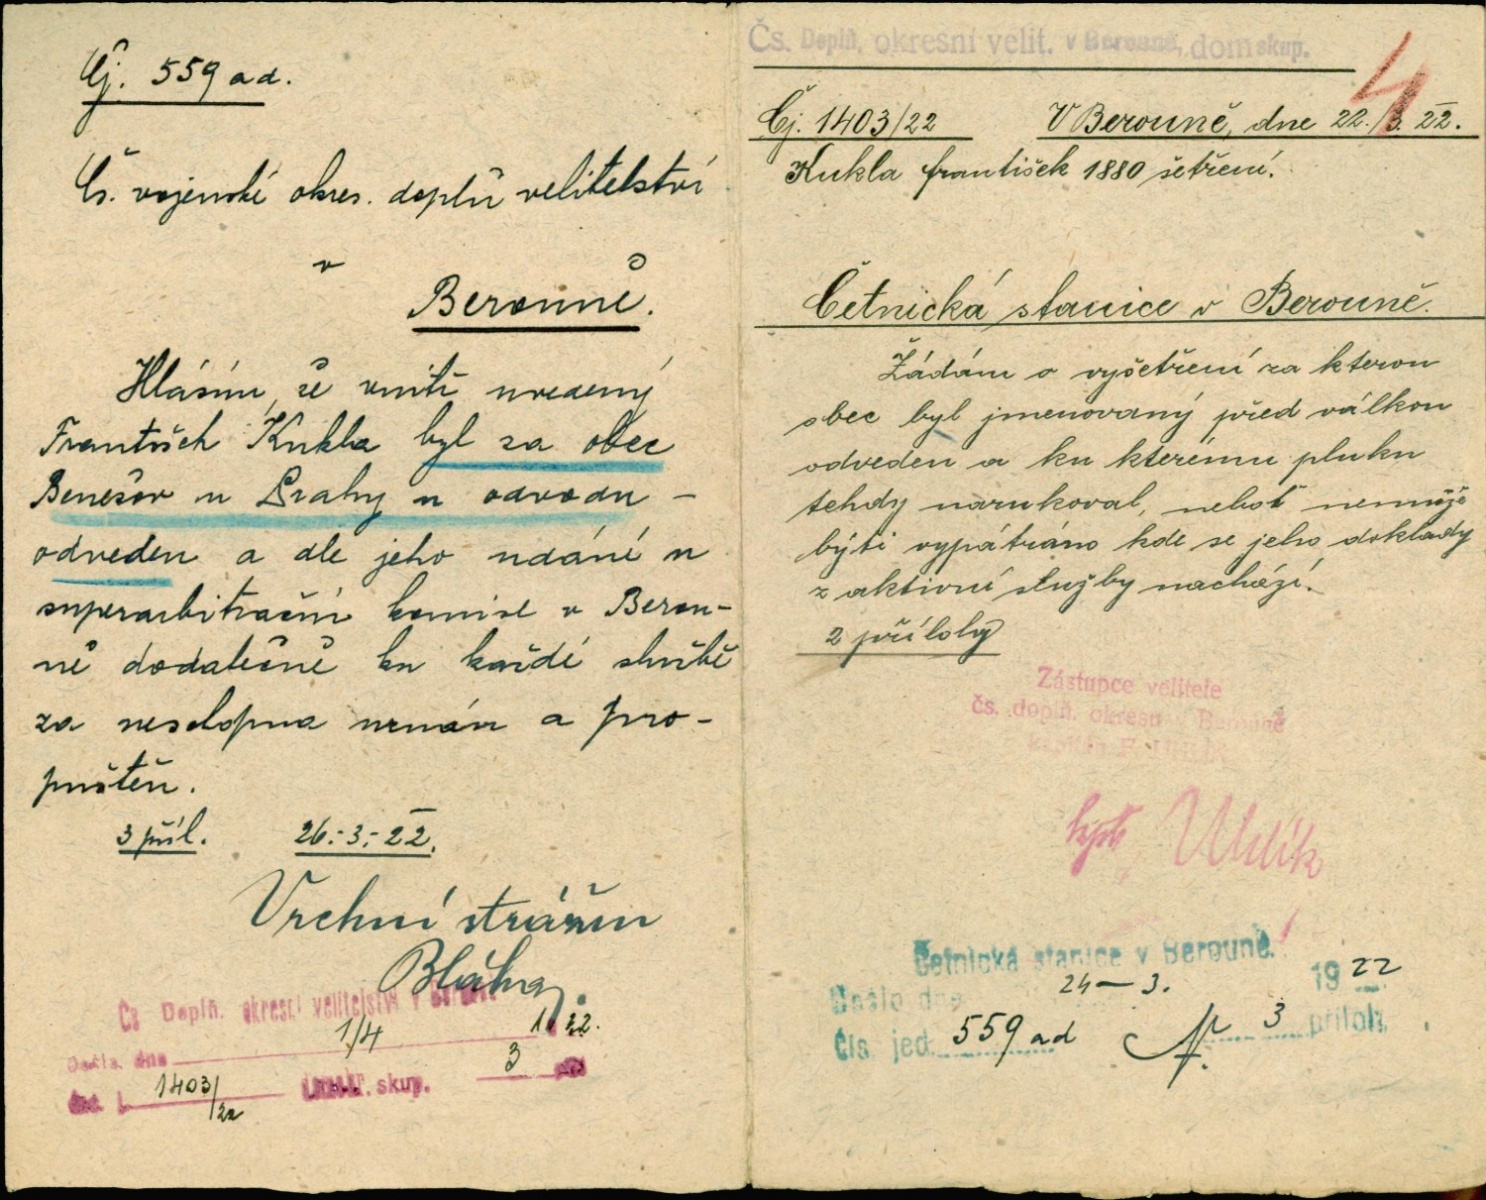 Čj. 559 ad.
Čs. vojenské okres. doplň velitelství
v
Berouně.
Hlásím, že vniti uvedený
František Kukla byl za obec
Benešov u Prahy u odvodu -
odveden a dle jeho udání u
superarbitrační komise v Berou-
ně dodatečně ku každé službě
za neschopna uznán a pro-
puštěn.
3 příl. 26.-3.-22.
Vrchní strážm
Bláha
Čs Doplň. okresní velitelství v Berouně
Došlo dne 1/4 1922.
1403/22 skup. 3
Čs. Doplň. okresní velit. v Berouně, dom skup.
4
Čj. 1403/22 V Berouně, dne 22./3. 22.
Kukla František 1880 šetření.
Četnická stanice v Berouně.
Žádám o vyšetření za kterou
obec byl jmenovaný před válkou
odveden a ku kterému pluku
tehdy narukoval, neboť nemůže
býti vypátráno kde se jeho doklady
z aktivní služby nachází.
2 přílohy
Zástupce velitele
čs. doplň. okresu Berouně
kapitán F. Uhlík
kpt Uhlík
Četnická stanice v Berouně.
Došlo dne 24-3. 1922
Čís. jed. 559 ad 3 příloh.